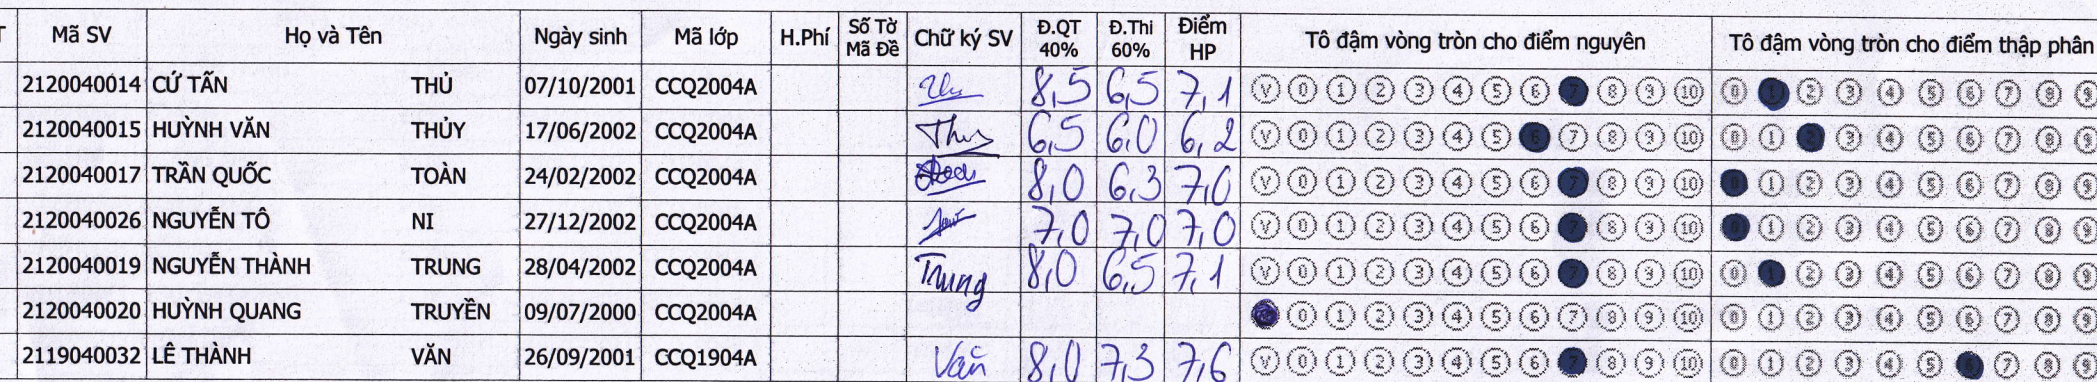 T Mã SV Họ và Tên Ngày sinh Mã lớp H.Phí Số Tờ Mã Đề Chữ ký SV Đ.QT 40% Đ.Thi 60% Điểm HP Tô đậm vòng tròn cho điểm nguyên Tô đậm vòng tròn cho điểm thập phân
2120040014 CỨ TẤN THỦ 07/10/2001 CCQ2004A 8,5 6,5 7,1 V 0 1 2 3 4 5 6 7 8 9 10 0 1 2 3 4 5 6 7 8 9
2120040015 HUỲNH VĂN THỦY 17/06/2002 CCQ2004A 6,5 6,0 6,2 V 0 1 2 3 4 5 6 7 8 9 10 0 1 2 3 4 5 6 7 8 9
2120040017 TRẦN QUỐC TOÀN 24/02/2002 CCQ2004A 8,0 6,3 7,0 V 0 1 2 3 4 5 6 7 8 9 10 1 2 3 4 5 6 7 8 9
2120040026 NGUYỄN TÔ NI 27/12/2002 CCQ2004A 7,0 7,0 7,0 V 0 1 2 3 4 5 6 7 8 9 10 1 2 3 4 5 6 7 8 9
2120040019 NGUYỄN THÀNH TRUNG 28/04/2002 CCQ2004A Trung 8,0 6,5 7,1 V 0 1 2 3 4 5 6 7 8 9 10 0 1 2 3 4 5 6 7 8 9
2120040020 HUỲNH QUANG TRUYỀN 09/07/2000 CCQ2004A 0 1 2 3 4 5 6 7 8 9 10 0 1 2 3 4 5 6 7 8 9
2119040032 LÊ THÀNH VĂN 26/09/2001 CCQ1904A Văn 8,0 7,3 7,6 V 0 1 2 3 4 5 6 7 8 9 10 0 1 2 3 4 5 6 7 8 9